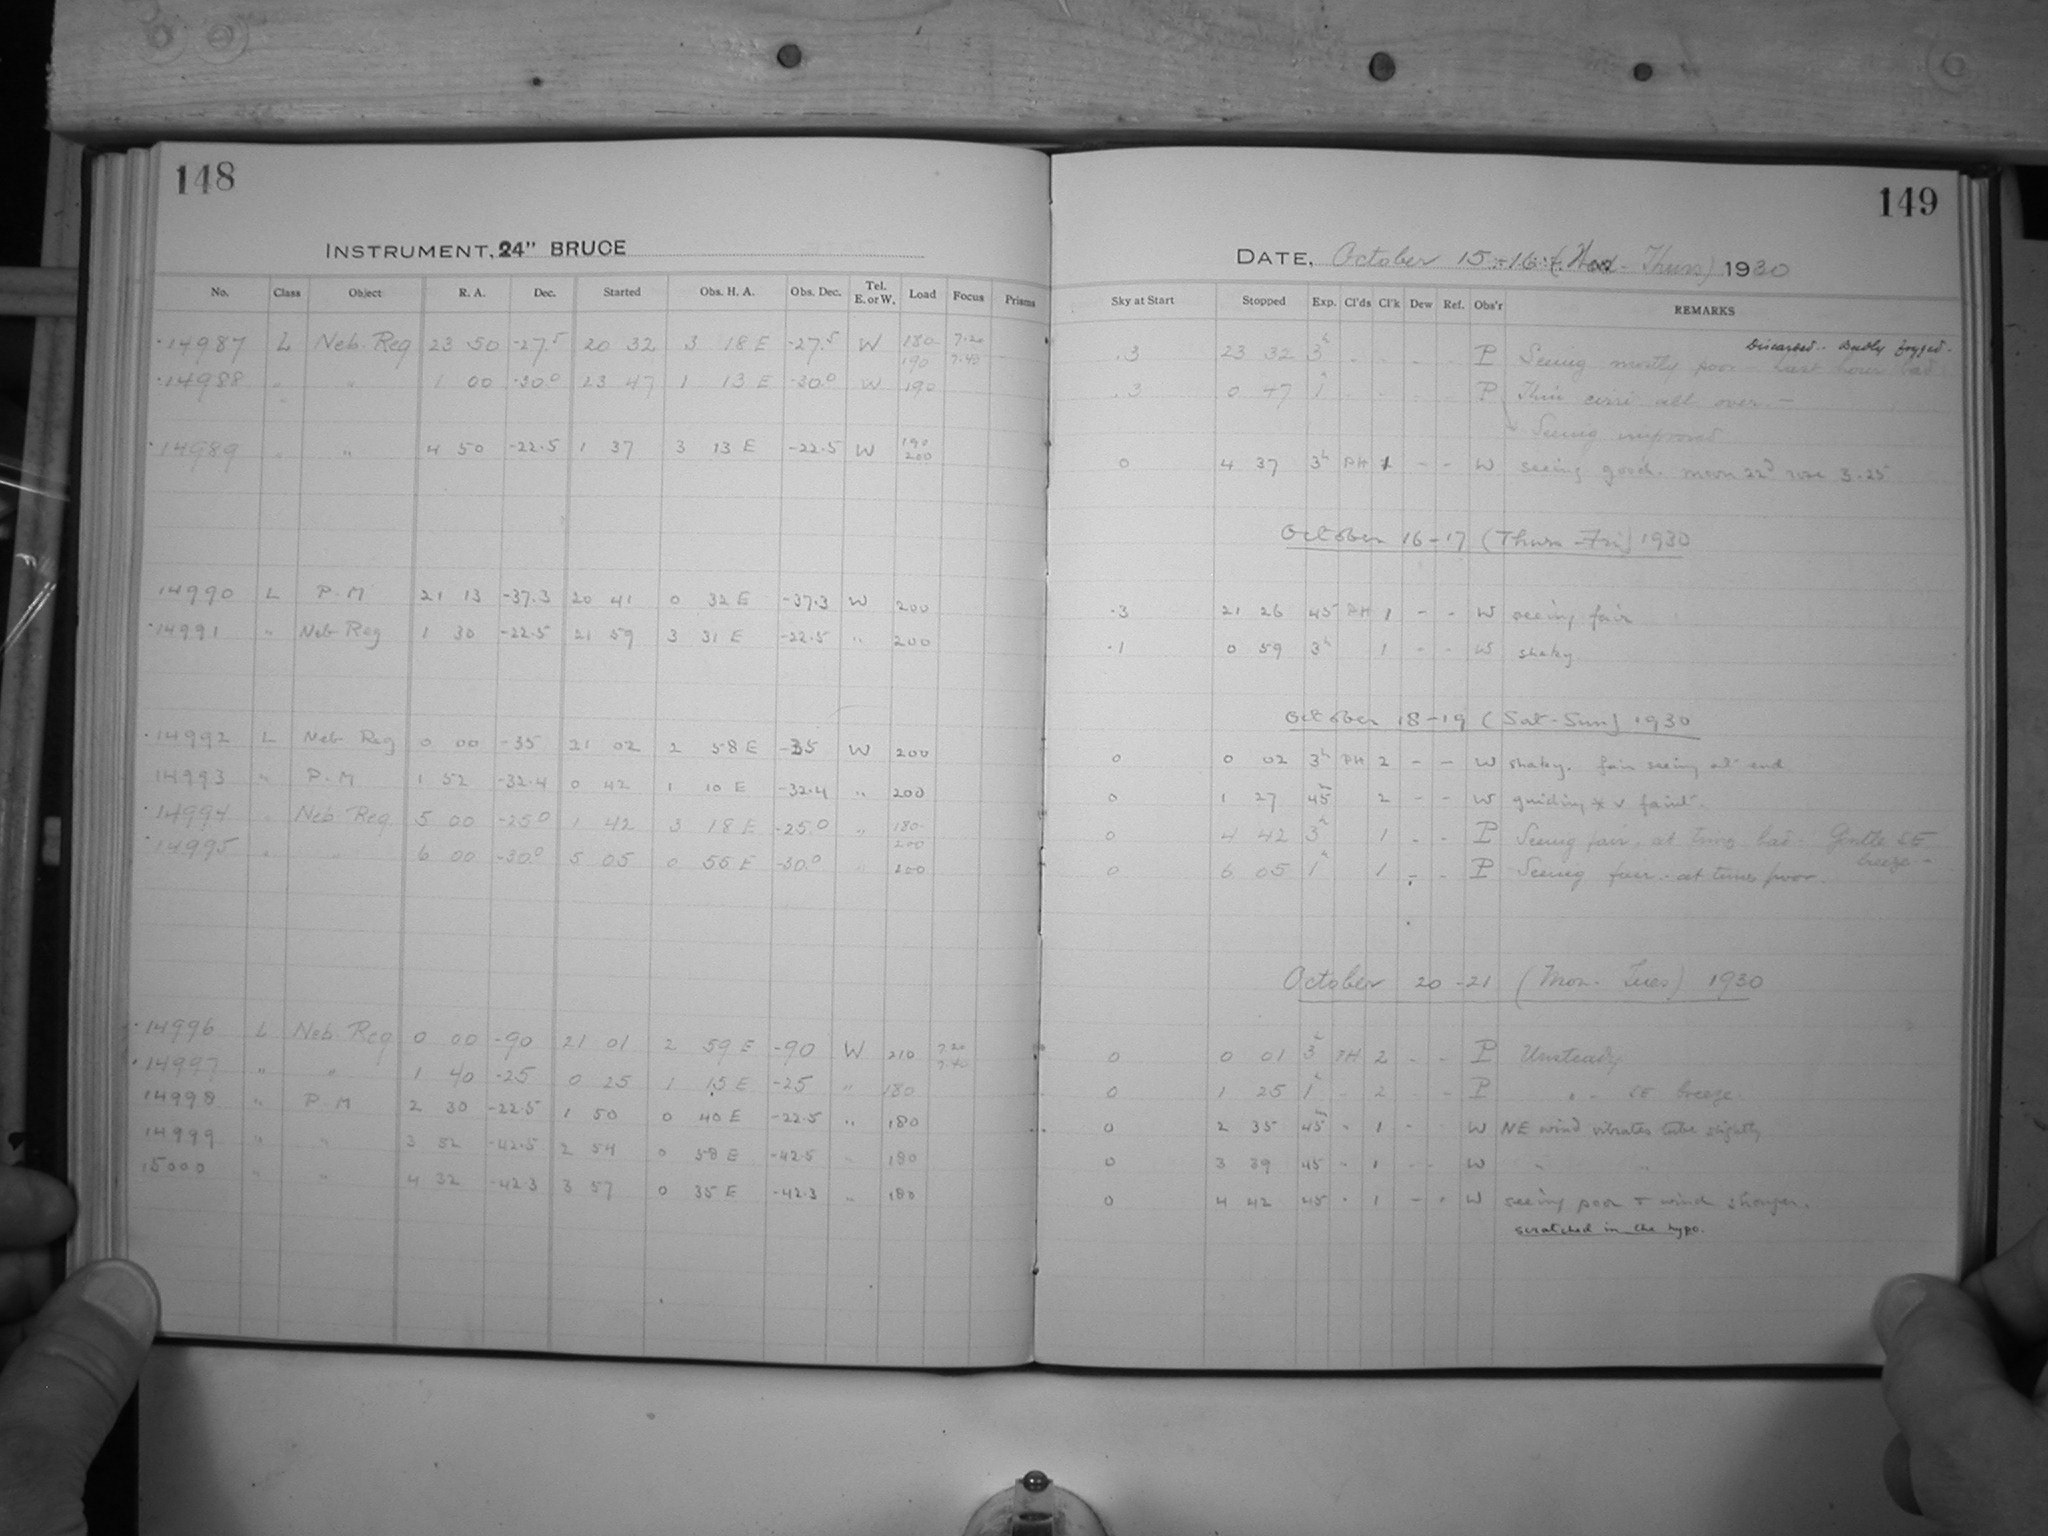 148
INSTRUMENT, 24" BRUCE
No. Class Object R. A. Dec. Started Obs. H. A. Obs. Dec. Tel. E. or W. Load Focus Prisms
14987 L Neb. Reg 23 50 -27.5 20 32 3 18 E -27.5 W 180- 7.20
190 7.40
14988 " " 1 00 -30.0 23 47 1 13 E -30.0 W 190
14989 " " 4 50 -22.5 1 37 3 13 E -22.5 W 190
200
14990 L P.M 21 13 -37.3 20 41 0 32 E -37.3 W 200
14991 " Neb Reg 1 30 -22.5 21 59 3 31 E -22.5 " 200
14992 L Neb Reg 0 00 -35 21 02 2 58 E -35 W 200
14993 " P.M 1 52 -32.4 0 42 1 10 E -32.4 " 200
14994 " Neb. Reg. 5 00 -25.0 1 42 3 18 E -25.0 " 180-
200
14995 " " 6 00 -30.0 5 05 0 56 E -30.0 " 200
14996 L Neb. Reg 0 00 -90 21 01 2 59 E -90 W 210 7.20
7.40
14997 " " 1 40 -25 0 25 1 15 E -25 " 180
14998 " P M 2 30 -22.5 1 50 0 40 E -22.5 " 180
14999 " " 3 52 -42.5 2 54 0 58 E -42.5 " 180
15000 " " 4 32 -42.3 3 57 0 35 E -42.3 " 180
149
DATE, October 15-16 (Wed - Thurs) 1930
Sky at Start Stopped Exp. Cl'ds Cl'k Dew Ref. Obs'r REMARKS
Discarded. Badly fogged.
.3 23 32 3h - - - - P Seeing mostly poor - Last hour bad
.3 0 47 1h - - - - P Thin cirri all over. -
Seeing improved
0 4 37 3h PH 1 - - W seeing good. moon 22d rose 3.25
October 16-17 (Thurs - Fri) 1930
.3 21 26 45 PH 1 - - W seeing fair
.1 0 59 3h 1 - - W shaky.
October 18-19 (Sat - Sun) 1930
0 0 02 3h PH 2 - - W shaky. fair seeing at end
0 1 27 45 2 - - W guiding * v faint.
0 4 42 3h 1 - - P Seeing fair. at times bad. Gentle SE
breeze -
0 6 05 1h 1 - - P Seeing fair. at times poor.
October 20-21 (Mon. Tues) 1930
0 0 01 3h PH 2 - - P Unsteady
0 1 25 1h - 2 - - P " - SE breeze.
0 2 35 45 " 1 - - W NE wind vibrates tube slightly
0 3 39 45 " 1 - - W " "
0 4 42 45 " 1 - - W seeing poor + wind stronger.
scratched in the hypo.